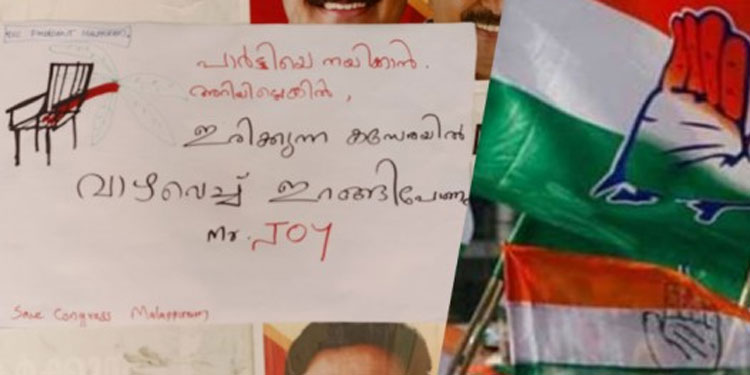 DCC PRESIDENT MALAPPURAM.
പാർട്ടിയെ നയിക്കാൻ.
അറിയില്ലെങ്കിൽ,
ഇരിക്കുന്ന കസേരയിൽ
വാഴവെച്ച് ഇറങ്ങിപോണം
Mr. JOY
Save Congress Malappuram